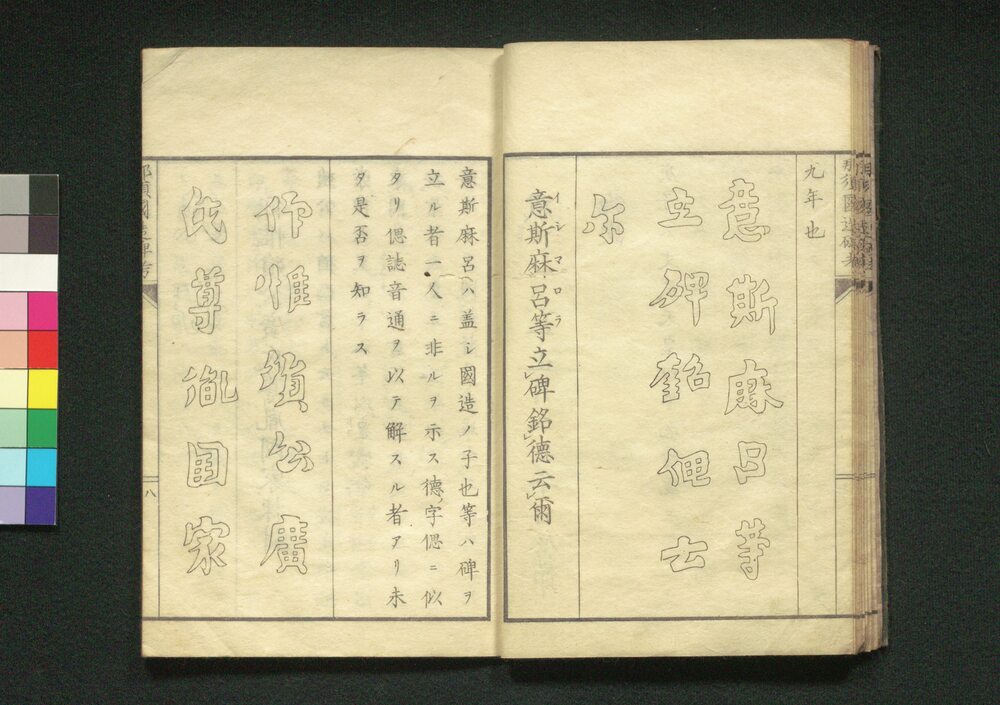 那須國造碑考
九年也
意斯麻呂等
立碑銘偲云
尓
意斯麻呂等立碑銘德云爾
イシマロラ
意斯麻呂ハ盖シ國造ノ子也等ハ碑ヲ
立ル者一人ニ非ルヲ示ス德字偲ニ似
タリ偲誌音通ヲ以テ解スル者アリ未
タ是否ヲ知ラス
仰惟殞公廣
氏尊胤国家
八